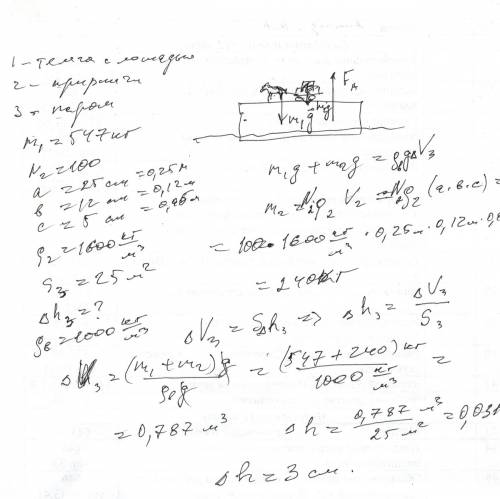 1 - телега с лошадью
2 - кирпичи
3 - паром
m₁ = 547 кг
N₂ = 100
a = 25 см = 0,25 м
в = 12 см = 0,12 м
c = 5 см = 0,05 м
ρ₂ = 1600 кг/м³
S₃ = 25 м²
Δh₃ = ?
ρв = 1000 кг/м³
F_A
m₁g
mg
m₁g + m₂g = ρвgΔV₃
m₂ = N₂ρ₂V₂ = N₂ρ₂(a.в.c) =
= 100 · 1600 кг/м³ · 0,25м · 0,12м · 0,0
= 240 кг
ΔV₃ = S₃Δh₃ => Δh₃ = ΔV₃/S₃
ΔV₃ = (m₁ + m₂)g/ρвg = (547 + 240) кг/1000 кг/м³ =
= 0,787 м³
Δh = 0,787 м³/25 м² = 0,031
Δh = 3 см.